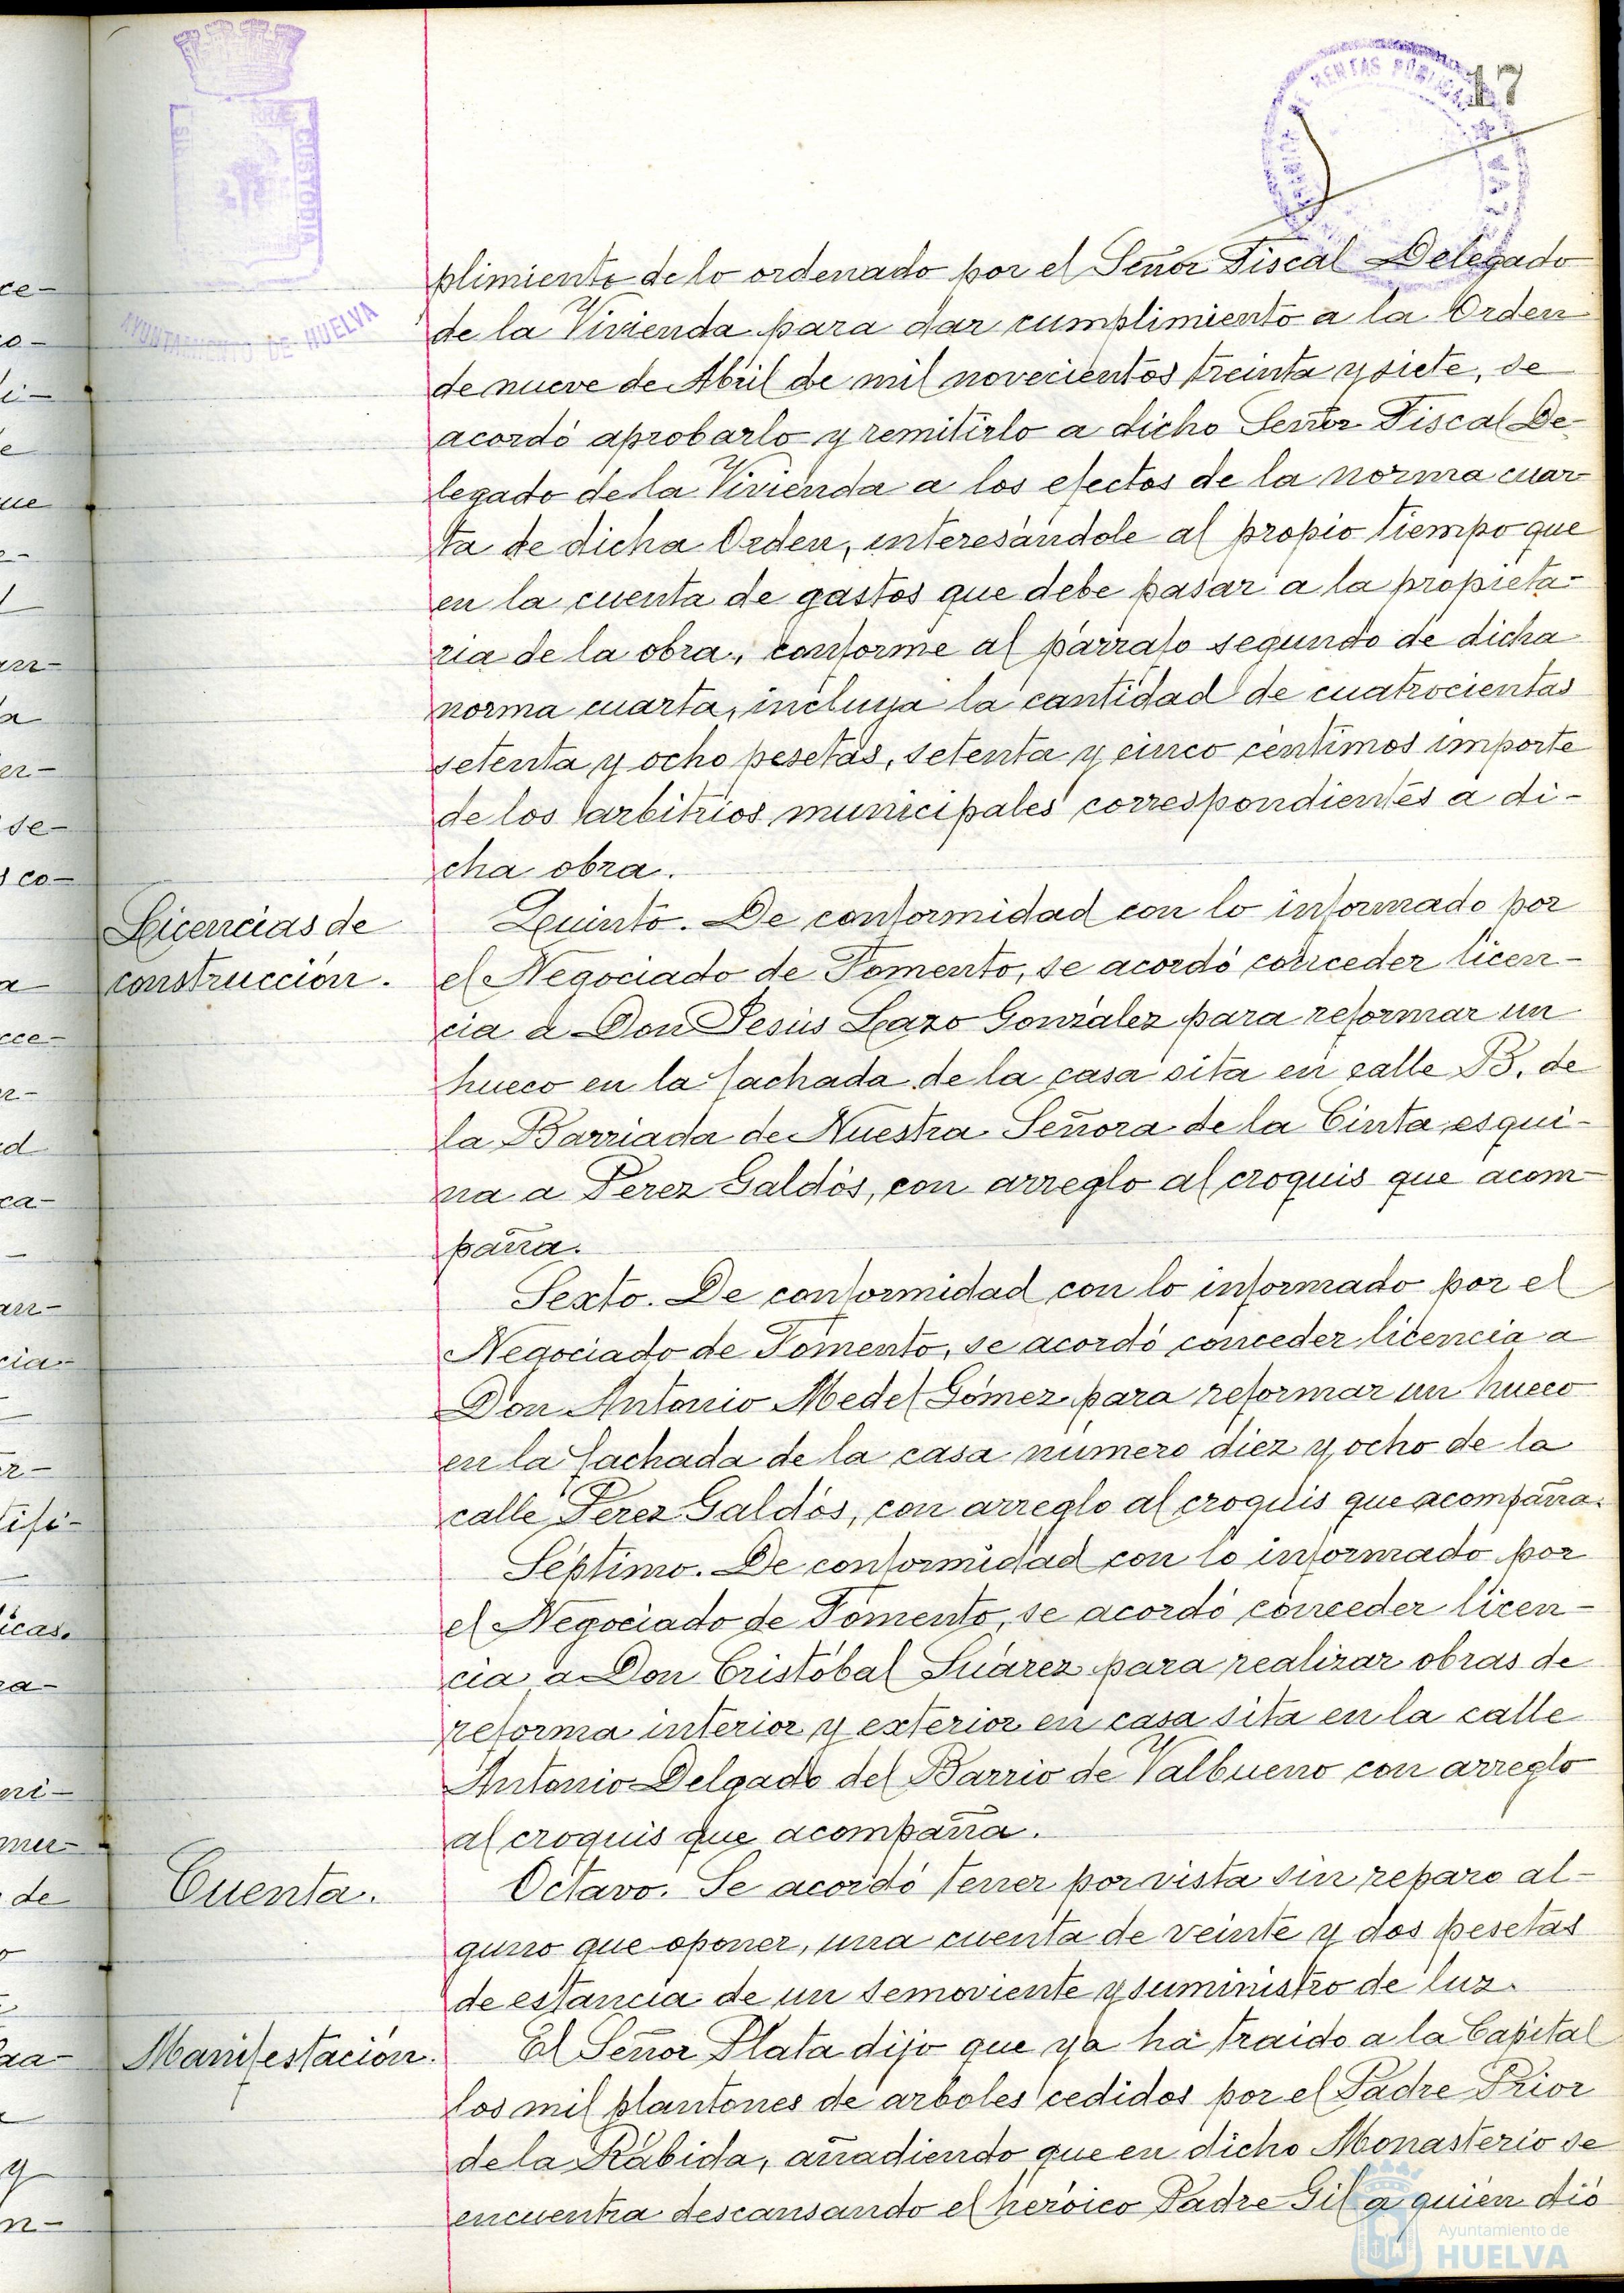 17
plimiento de lo ordenado por el Señor Fiscal Delegado
de la Vivienda para dar cumplimiento a la Orden
de nueve de Abril de mil novecientos treinta y siete, se
acordó aprobarlo y remitirlo a dicho Señor Fiscal De-
legado de la Vivienda a los efectos de la norma cuar-
ta de dicha Orden, interesándole al propio tiempo que
en la cuenta de gastos que debe pasar a la propieta-
ria de la obra, conforme al párrafo segundo de dicha
norma cuarta, incluya la cantidad de cuatrocientas
setenta y ocho pesetas, setenta y cinco céntimos importe
de los arbitrios municipales correspondientes a di-
cha obra.
Licencias de
construcción.
Quinto. De conformidad con lo informado por
el Negociado de Fomento, se acordó conceder licen-
cia a Don Jesús Lazo González para reformar un
hueco en la fachada de la casa sita en calle B. de
la Barriada de Nuestra Señora de la Cinta esqui-
na a Perez Galdós, con arreglo al croquis que acom-
paña.
Sexto. De conformidad con lo informado por el
Negociado de Fomento, se acordó conceder licencia a
Don Antonio Medel Gómez para reformar un hueco
en la fachada de la casa número diez y ocho de la
calle Perez Galdós, con arreglo al croquis que acompaña.
Séptimo. De conformidad con lo informado por
el Negociado de Fomento, se acordó conceder licen-
cia a Don Cristóbal Suárez para realizar obras de
reforma interior y exterior en casa sita en la calle
Antonio Delgado del Barrio de Valbueno con arreglo
al croquis que acompaña.
Cuenta.
Octavo. Se acordó tener por vista sin reparo al-
guno que oponer, una cuenta de veinte y dos pesetas
de estancia de un semoviente y suministro de luz.
Manifestación.
El Señor Plata dijo que ya há traido a la Capital
los mil plantones de árboles cedidos por el Padre Prior
de la Rábida, añadiendo que en dicho Monasterio se
encuentra descansando el heróico Padre Gil a quién dió
AYUNTAMIENTO DE HUELVA
CUSTODIA
RENTAS PÚBLICAS
Ayuntamiento de
HUELVA